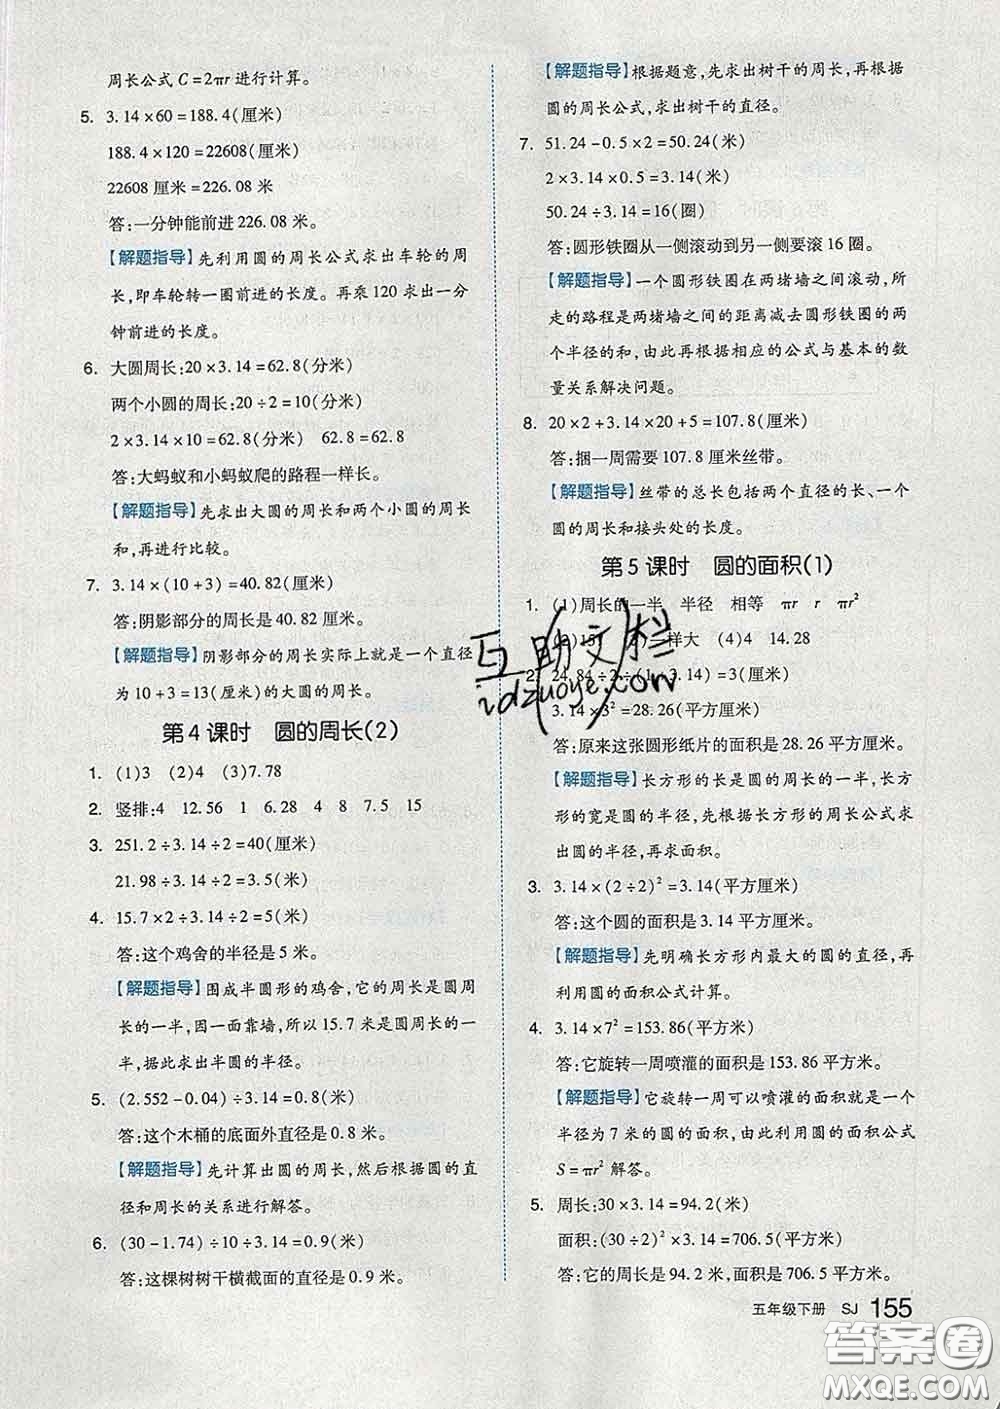 周长公式 C=2πr 进行计算。
5. 3.14×60=188.4(厘米)
188.4×120=22608(厘米)
22608 厘米=226.08 米。
答:一分钟能前进 226.08 米。
【解题指导】先利用圆的周长公式求出车轮的周
长,即车轮转一圈前进的长度。再乘 120 求出一分
钟前进的长度。
6. 大圆周长:20×3.14=62.8(分米)
两个小圆的周长:20÷2=10(分米)
2×3.14×10=62.8(分米) 62.8=62.8
答:大蚂蚁和小蚂蚁爬的路程一样长。
【解题指导】先求出大圆的周长和两个小圆的周长
和,再进行比较。
7. 3.14×(10+3)=40.82(厘米)
答:阴影部分的周长是 40.82 厘米。
【解题指导】阴影部分的周长实际上就是一个直径
为 10+3=13(厘米)的大圆的周长。
第 4 课时 圆的周长(2)
1. (1)3 (2)4 (3)7.78
2. 竖排:4 12.56 1 6.28 4 8 7.5 15
3. 251.2÷3.14÷2=40(厘米)
21.98÷3.14÷2=3.5(米)
4. 15.7×2÷3.14÷2=5(米)
答:这个鸡舍的半径是 5 米。
【解题指导】围成半圆形的鸡舍,它的周长是圆周
长的一半,因一面靠墙,所以 15.7 米是圆周长的一
半,据此求出半圆的半径。
5. (2.552-0.04)÷3.14=0.8(米)
答:这个木桶的底面外直径是 0.8 米。
【解题指导】先计算出圆的周长,然后根据圆的直
径和周长的关系进行解答。
6. (30-1.74)÷10÷3.14=0.9(米)
答:这棵树树干横截面的直径是 0.9 米。
【解题指导】根据题意,先求出树干的周长,再根据
圆的周长公式,求出树干的直径。
7. 51.24-0.5×2=50.24(米)
2×3.14×0.5=3.14(米)
50.24÷3.14=16(圈)
答:圆形铁圈从一侧滚动到另一侧要滚 16 圈。
【解题指导】一个圆形铁圈在两堵墙之间滚动,所
走的路程是两堵墙之间的距离减去圆形铁圈的两
个半径的和,由此再根据相应的公式与基本的数
量关系解决问题。
8. 20×2+3.14×20+5=107.8(厘米)
答:捆一周需要 107.8 厘米丝带。
【解题指导】丝带的总长包括两个直径的长、一个
圆的周长和接头处的长度。
第 5 课时 圆的面积(1)
1. (1)周长的一半 半径 相等 πr r πr²
样大 (4)4 14.28
2. 24.84÷2÷(1+3.14)=3(厘米)
3.14×3²=28.26(平方厘米)
答:原来这张圆形纸片的面积是 28.26 平方厘米。
【解题指导】长方形的长是圆的周长的一半,长方
形的宽是圆的半径,先根据长方形的周长公式求
出圆的半径,再求面积。
3. 3.14×(2÷2)²=3.14(平方厘米)
答:这个圆的面积是 3.14 平方厘米。
【解题指导】先明确长方形内最大的圆的直径,再
利用圆的面积公式计算。
4. 3.14×7²=153.86(平方米)
答:它旋转一周喷灌的面积是 153.86 平方米。
【解题指导】它旋转一周可以喷灌的面积就是一个
半径为 7 米的圆的面积,由此利用圆的面积公式
S=πr² 解答。
5. 周长:30×3.14=94.2(米)
面积:(30÷2)²×3.14=706.5(平方米)
答:它的周长是 94.2 米,面积是 706.5 平方米。
五年级下册 SJ 155
互助文档
idzuoye.com
答案圈
MXQE.COM